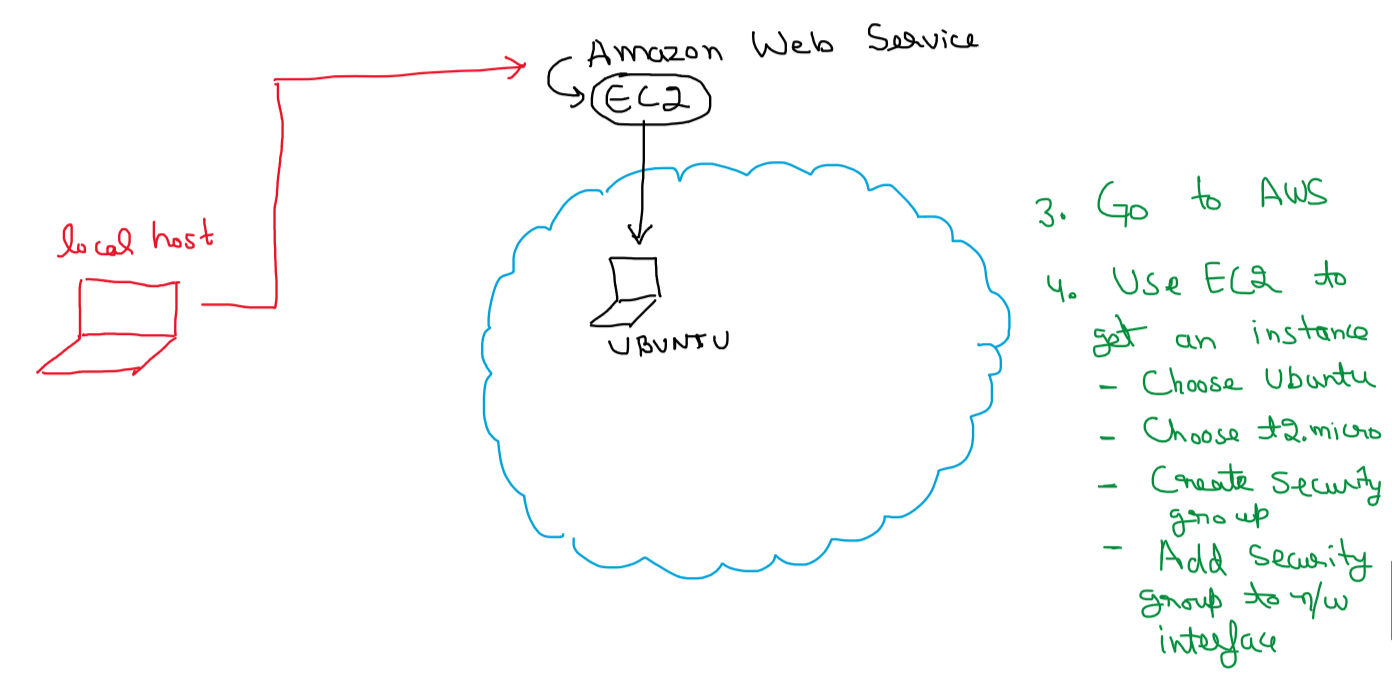 Amazon Web Service
EC2
local host
UBUNTU
3. Go to AWS
4. Use EC2 to
get an instance
- Choose Ubuntu
- Choose t2.micro
- Create Security
group
- Add Security
group to n/w
interface